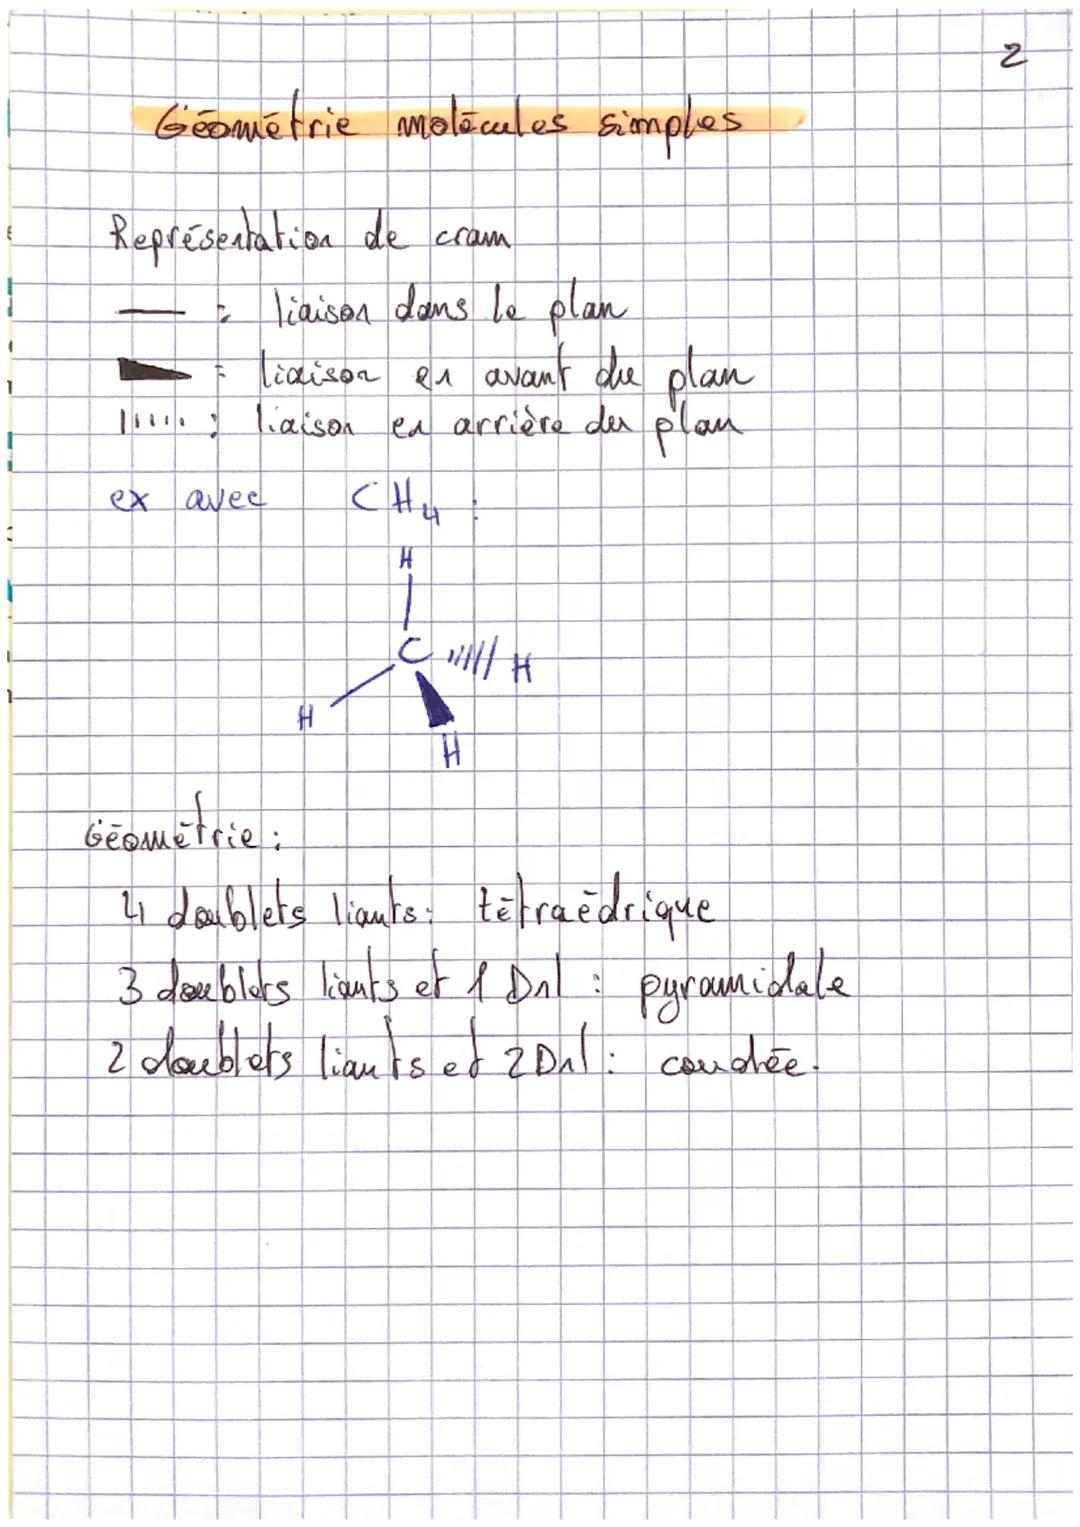 2
Géométrie molécules simples
Représentation de cram
— : liaison dans le plan
: liaison en avant du plan
: liaison en arrière du plan
ex avec CH4 :
H
C H
H
H
Géométrie :
4 doublets liants : tétraédrique
3 doublets liants et 1 Dnl : pyramidale
2 doublets liants et 2 Dnl : coudée.